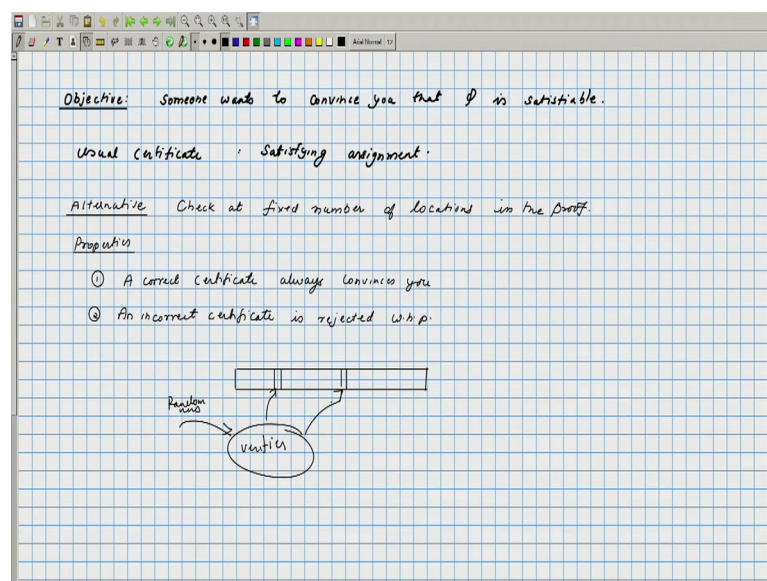 Arial Normal 12
Objective: Someone wants to convince you that φ is satisfiable.
Usual certificate : Satisfying assignment.
Alternative Check at fixed number of locations in the proof.
Properties
① A correct certificate always convinces you
② An incorrect certificate is rejected w.h.p.
Random
verifier